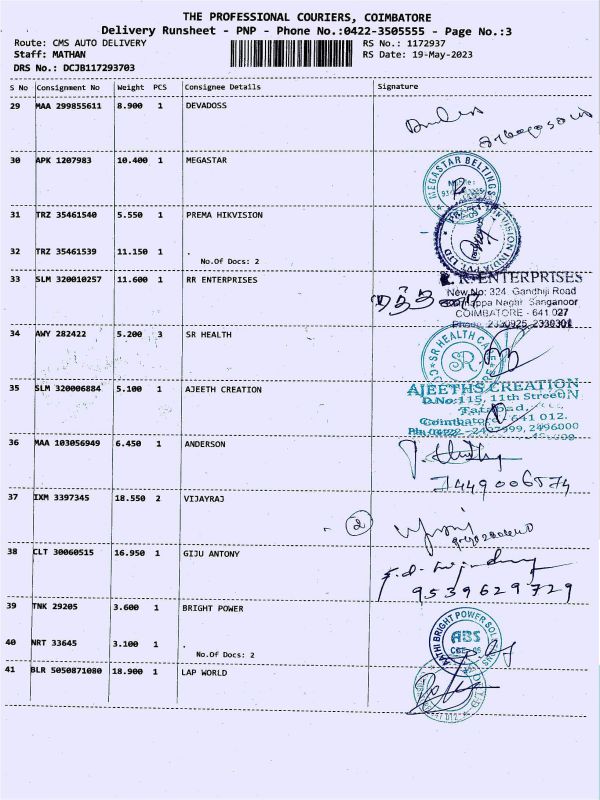 THE PROFESSIONAL COURIERS, COIMBATORE
Delivery Runsheet - PNP - Phone No.:0422-3505555 - Page No.:3
Route: CMS AUTO DELIVERY RS No.: 1172937
Staff: MATHAN RS Date: 19-May-2023
DRS No.: DCJB117293703
S No Consignment No Weight PCS Consignee Details Signature
29 MAA 299855611 8.900 1 DEVADOSS
30 APK 1207983 10.400 1 MEGASTAR
MEGASTAR BELTINGS
31 TRZ 35461540 5.550 1 PREMA HIKVISION
32 TRZ 35461539 11.150 1 .
No.Of Docs: 2
33 SLM 320010257 11.600 1 RR ENTERPRISES
ENTERPRISES
New No: 324 Gandhiji Road
Nagar Sanganoor
COIMBATORE - 641 027
Phone: 2330925, 2330301
34 AWY 282422 5.200 3 SR HEALTH
SR HEALTH CARE
SR
35 SLM 320006884 5.100 1 AJEETH CREATION
AJEETHS CREATION
D.No:115, 11th Street
Tatabad,
641 012.
2496000
36 MAA 103056949 6.450 1 ANDERSON
37 IXM 3397345 18.550 2 VIJAYRAJ
2
38 CLT 30060515 16.950 1 GIJU ANTONY
9539629729
39 TNK 29205 3.600 1 BRIGHT POWER
BRIGHT POWER SOL
ABS
40 NRT 33645 3.100 1 .
No.Of Docs: 2
41 BLR 5050871080 18.900 1 LAP WORLD